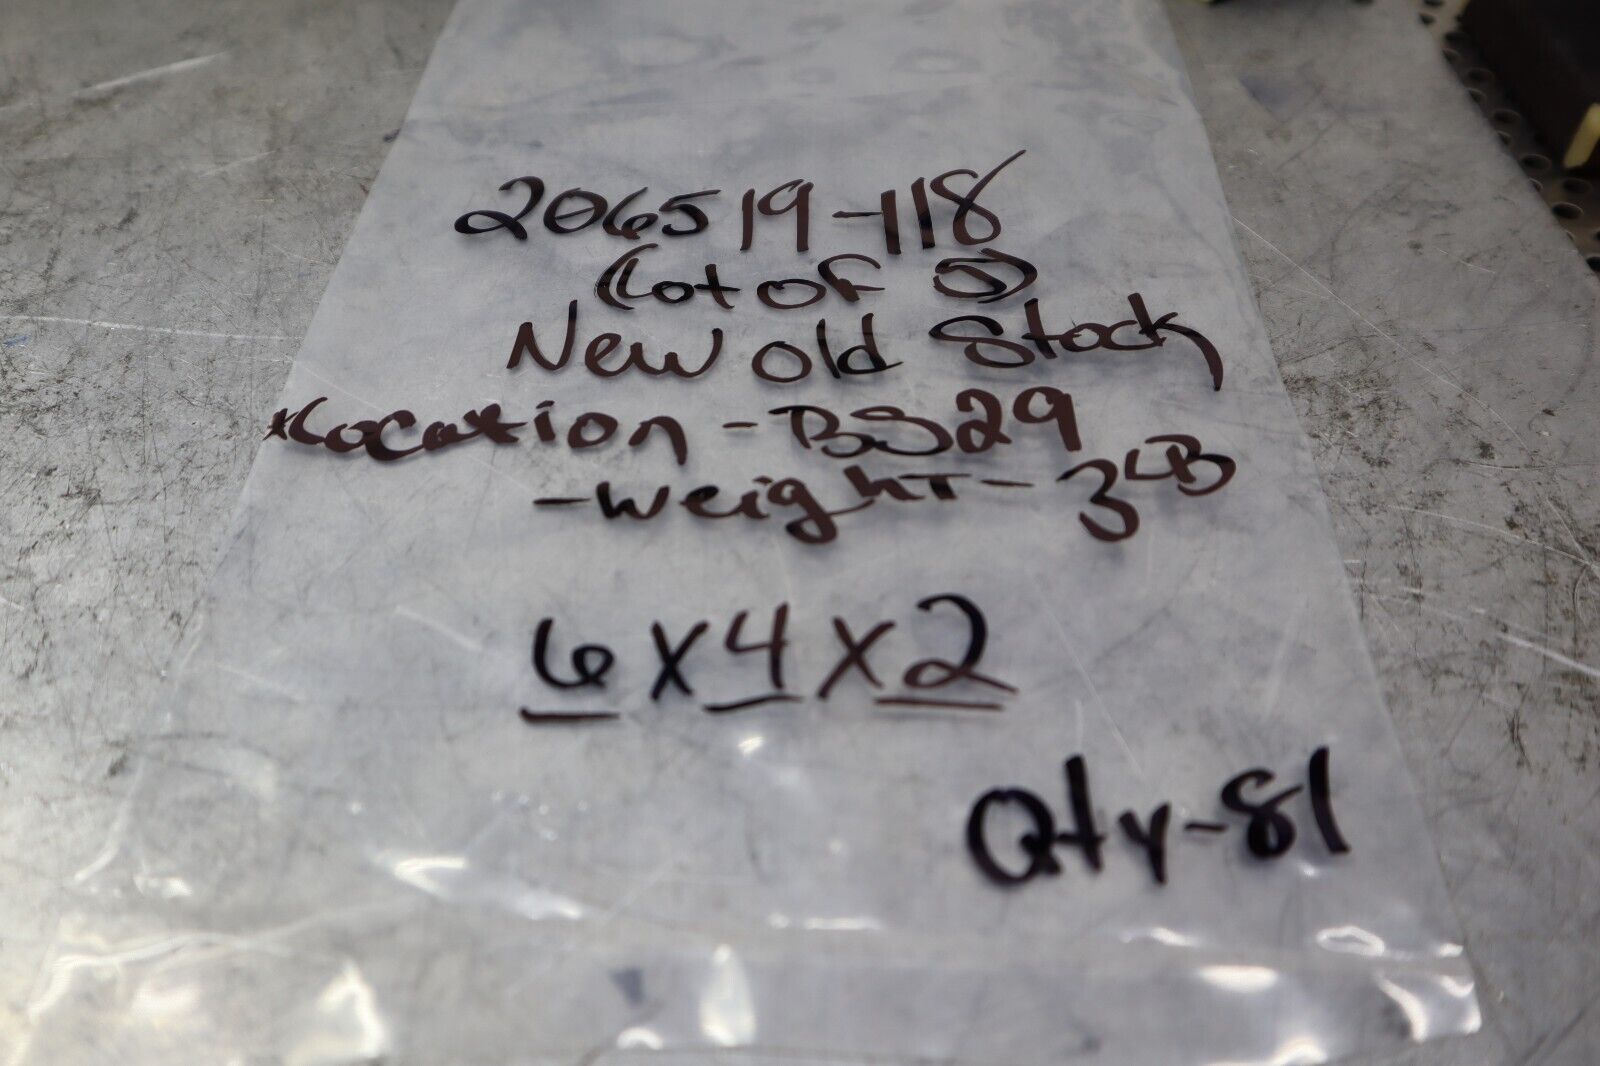 206519-118
(Lot of 5)
New old Stock
*Location - BS29
- weight - 3LB
6 x 4 x 2
Qty - 81